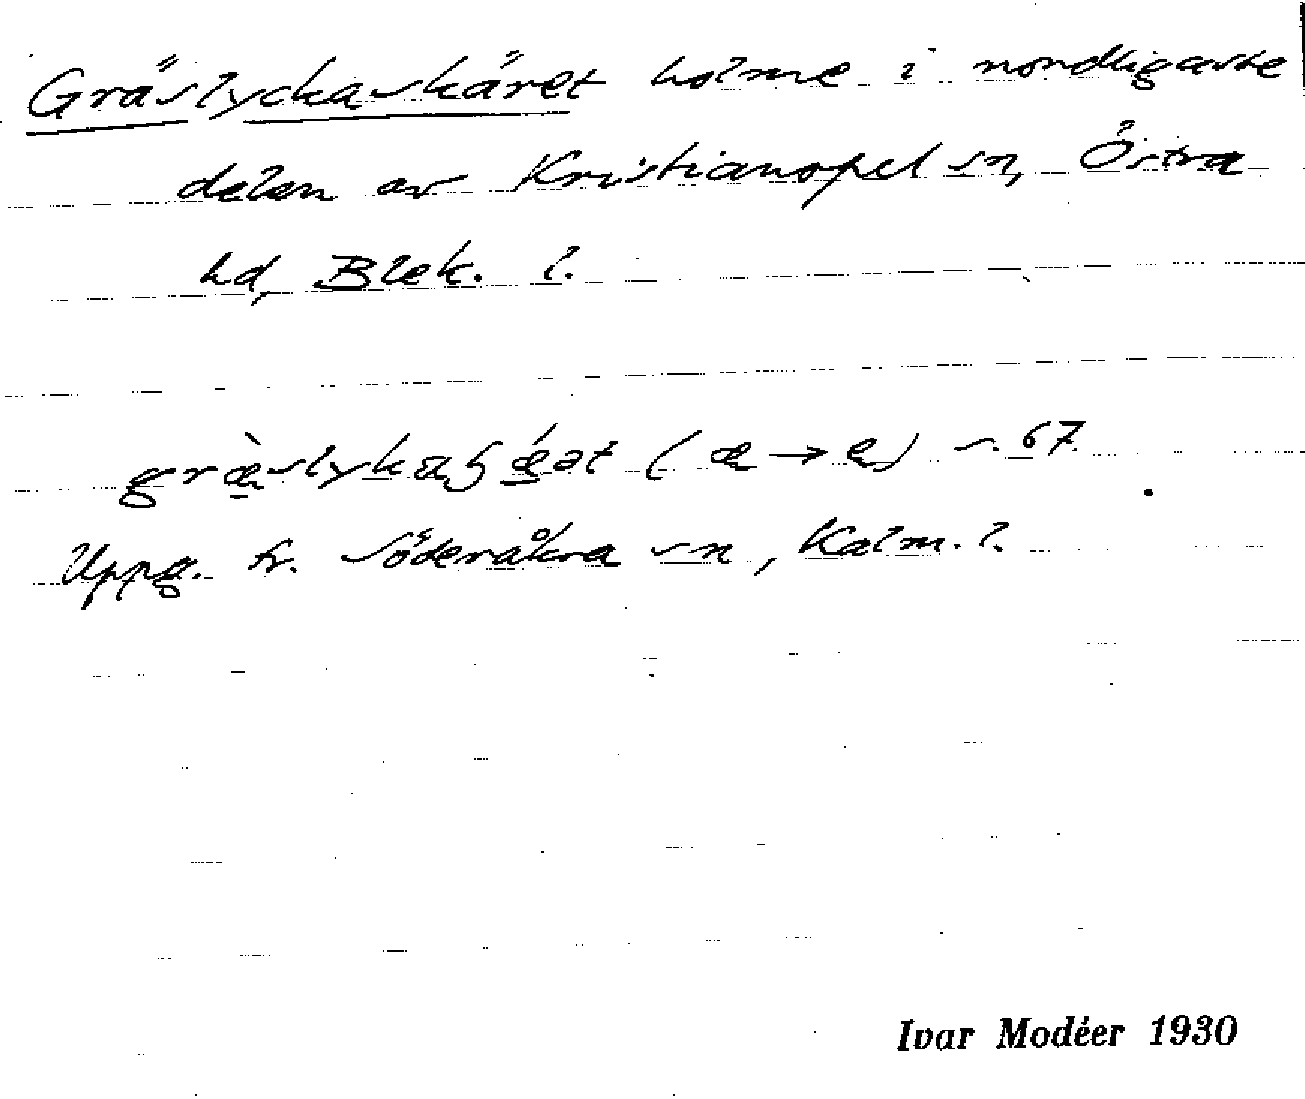 Gräslyckaskäret holme i nordligaste
delen av Kristianopel sn, Östra
hd, Blek. l.
(æ → e) s. 67.
Uppg. fr. Söderåkra sn, Kalm. l.
Ivar Modéer 1930